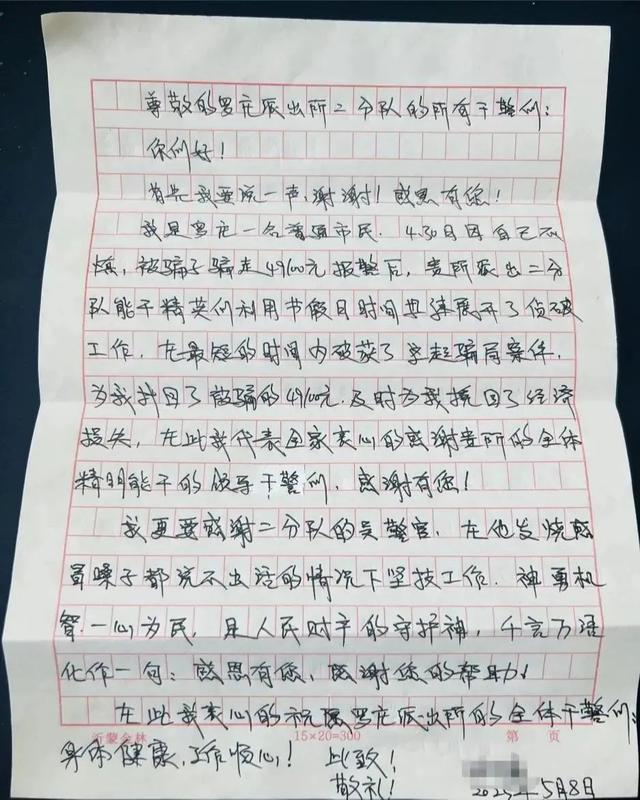 尊敬的罗庄派出所二分队的所有干警们:
你们好!
首先我要说一声,谢谢!感恩有您!
我是罗庄一名普通市民.4.30日因自己不
慎,被骗子骗走49100元报警后,贵所派出二分
队能干精英们利用节假日时间迅速展开了侦破
工作,在最短的时间内破获了这起骗局案件,
为我找回了被骗的49100元.及时为我挽回了经济
损失,在此我代表全家衷心的感谢贵所的全体
精明能干的领导干警们,感谢有您!
我更要感谢二分队的吴警官,在他发烧感
冒嗓子都说不出话的情况下坚持工作,神勇机
智一心为民,是人民财产的守护神,千言万语
化作一句:感恩有您,感谢您的帮助!
在此我衷心的祝愿罗庄派出所的全体干警们、
沂蒙金林 15×20=300 第 页
身体健康,工作顺心! 此致!
敬礼! 2025年5月8日